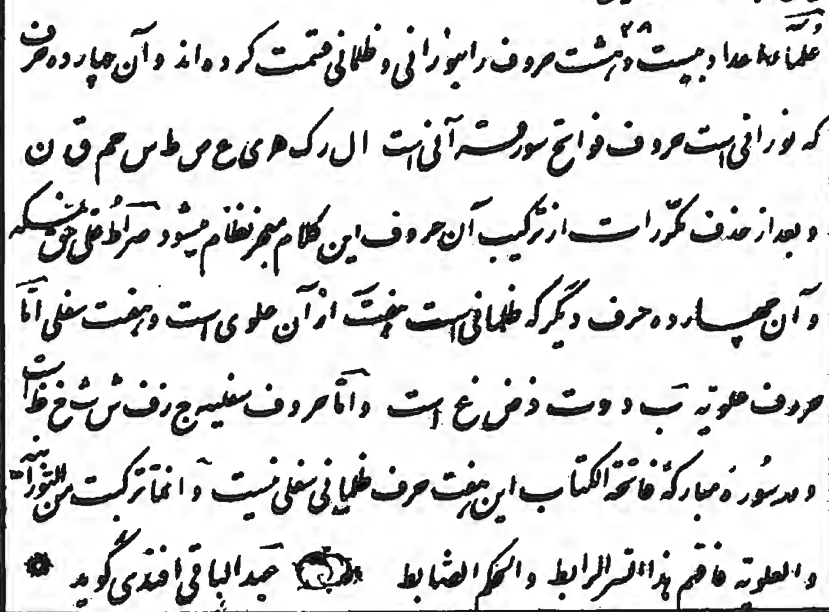 علمای اعداد بیست و هشت ۲۸ حروف را بنورانی و ظلمانی قسمت کرده‌اند و آن چهارده حرف
که نورانی است حروف فواتح سور قرآنی است ال رک ه ی ع ص ط س ح م ق ن
و بعد از حذف مکررات از ترکیب آن حروف این کلام معجز نظام میشود صراط علی حق نمسکه
و آن چهارده حرف دیگر که ظلمانی است هفت از آن علوی است و هفت سفلی امّا
حروف علویه ب د و ت ذ ض غ است و امّا حروف سفلیه ج ز ف ش ث خ ظ است
و در سوره مبارکهٔ فاتحة الکتاب این هفت حرف ظلمانی سفلی نیست و انما ترکبت من النورانیة
و العلویه فافهم هذا السر الرابط و الحکم الضابط عبد الباقی افندی گوید